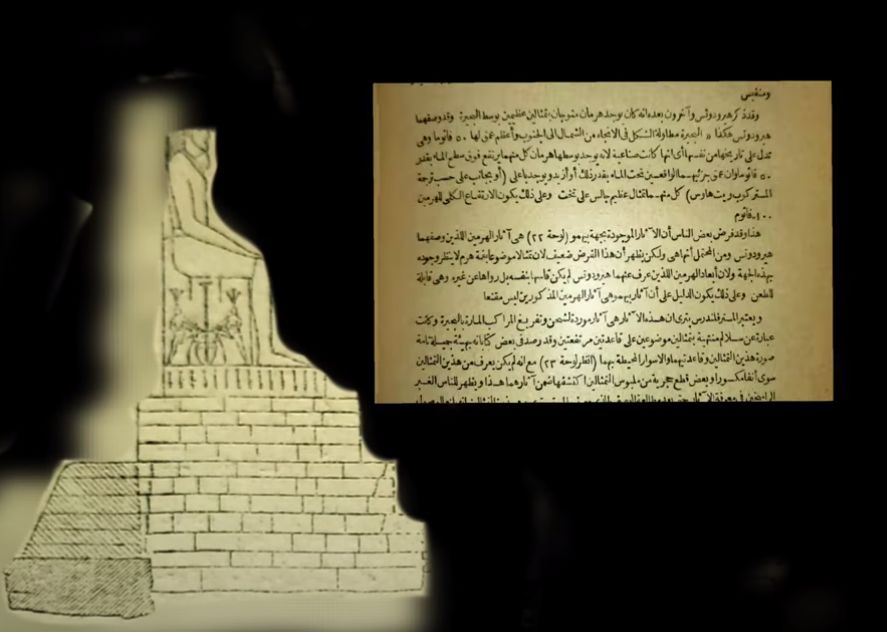 ومنفيس
وقد ذكر هيرودوتس وآخرون بعده انه كان يوجد هرمان متوجان بتمثالين عظيمين بوسط البحيرة وقد وصفهما
هيرودوتس هكذا « البحيرة مطاولة الشكل في الاتجاه من الشمال الى الجنوب وأعظم عمق لها ٥٠ فاثوما وهى
تدل على ان تاريخها من نفسها أى انها كانت صناعية لانه يوجد بوسطها هرمان كل منهما يرتفع فوق سطح الماء بقدر
٥٠ فاثوما وان عمق جزئيهما الواقعين تحت الماء بقدر ذلك أو أزيد ويوجد باعلى (أو بجانب على حسب ترجمة
المستر كوب ويت هاوس) كل منهما تمثال عظيم جالس على تخت وعلى ذلك يكون الارتفاع الكلى للهرمين
١٠٠ فاثوم
هذا وقد فرض بعض الناس أن الآثار الموجودة بجهة بيهمو (لوحة ٢٢) هى آثار الهرمين اللذين وصفهما
هيرودوتس ومن المحتمل أنها هى ولكن يظهر أن هذا الفرض ضعيف لان تمثالا موضوعا بقمة هرم لا ينتظر وجوده
بهذه الجهة ولان أبعاد الهرمين اللذين عرف عنهما هيرودوتس لم يكن قاسها بنفسه بل رواها عن غيره وهى قابلة
للطعن وعلى ذلك يكون الدليل على أن آثار بيهمو هى آثار الهرمين المذكورين ليس مقنعا
ويعتبر المستر فلندرس بترى ان هذه الآثار هى آثار موردة لشحن وتفريغ المراكب المارة بالبحيرة وكانت
عبارة عن سلالم منتهية بتمثالين موضوعين على قاعدتين مرتفعتين وقد رصد فى بعض كتاباته بهيئة جميلة تامة
صورة هذين التمثالين وقاعدتيهما والاسوار المحيطة بهما (انظر لوحة ٢٣) مع انه لم يكن يعرف من هذين التمثالين
سوى أنفا مكسورا وبعض قطع حجرية من ملبوس التمثالين اكتشفها ضمن آثارهما هذا ويظهر للناس الغير